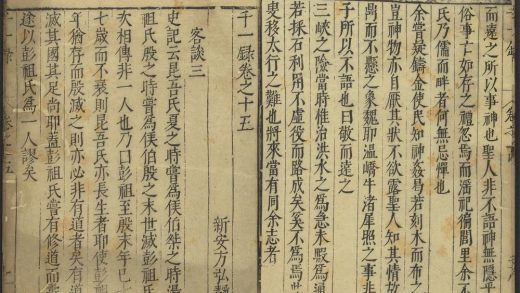 而遠之所以事神也聖人非不語神無隱乎
俗事亡如存之禮忽焉而滛祀徧閭里余不
氏乃儒而畔者何無忌憚也
余嘗疑鑄金使民知神姦易若刻木而布之
豈神物亦自厭其狀不欲露聖人知其情故
而不懸之象魏耶温嶠牛渚犀照之事非
子所以不語也曰敬而遠之
三峽之險當時惟治洪水之為急未暇為
若採石利用不虛役而路成矣奚不為焉此
叟移太行之難也將來當有同余志者
千一錄卷之十五
新安方弘靜
客談三
史記云昆吾氏夏之時嘗為侯伯桀之時湯
祖氏殷之時嘗為侯伯殷之末世滅彭祖氏
次相傳非一人也乃曰彭祖至殷末年已
七歲而不衰則昆吾氏亦長生者耶使彭祖
年猶存而殷滅之則亦必非有道者矣有道
滅其國其足尚耶蓋彭祖氏嘗有修道而
遂以彭祖氏為一人謬矣